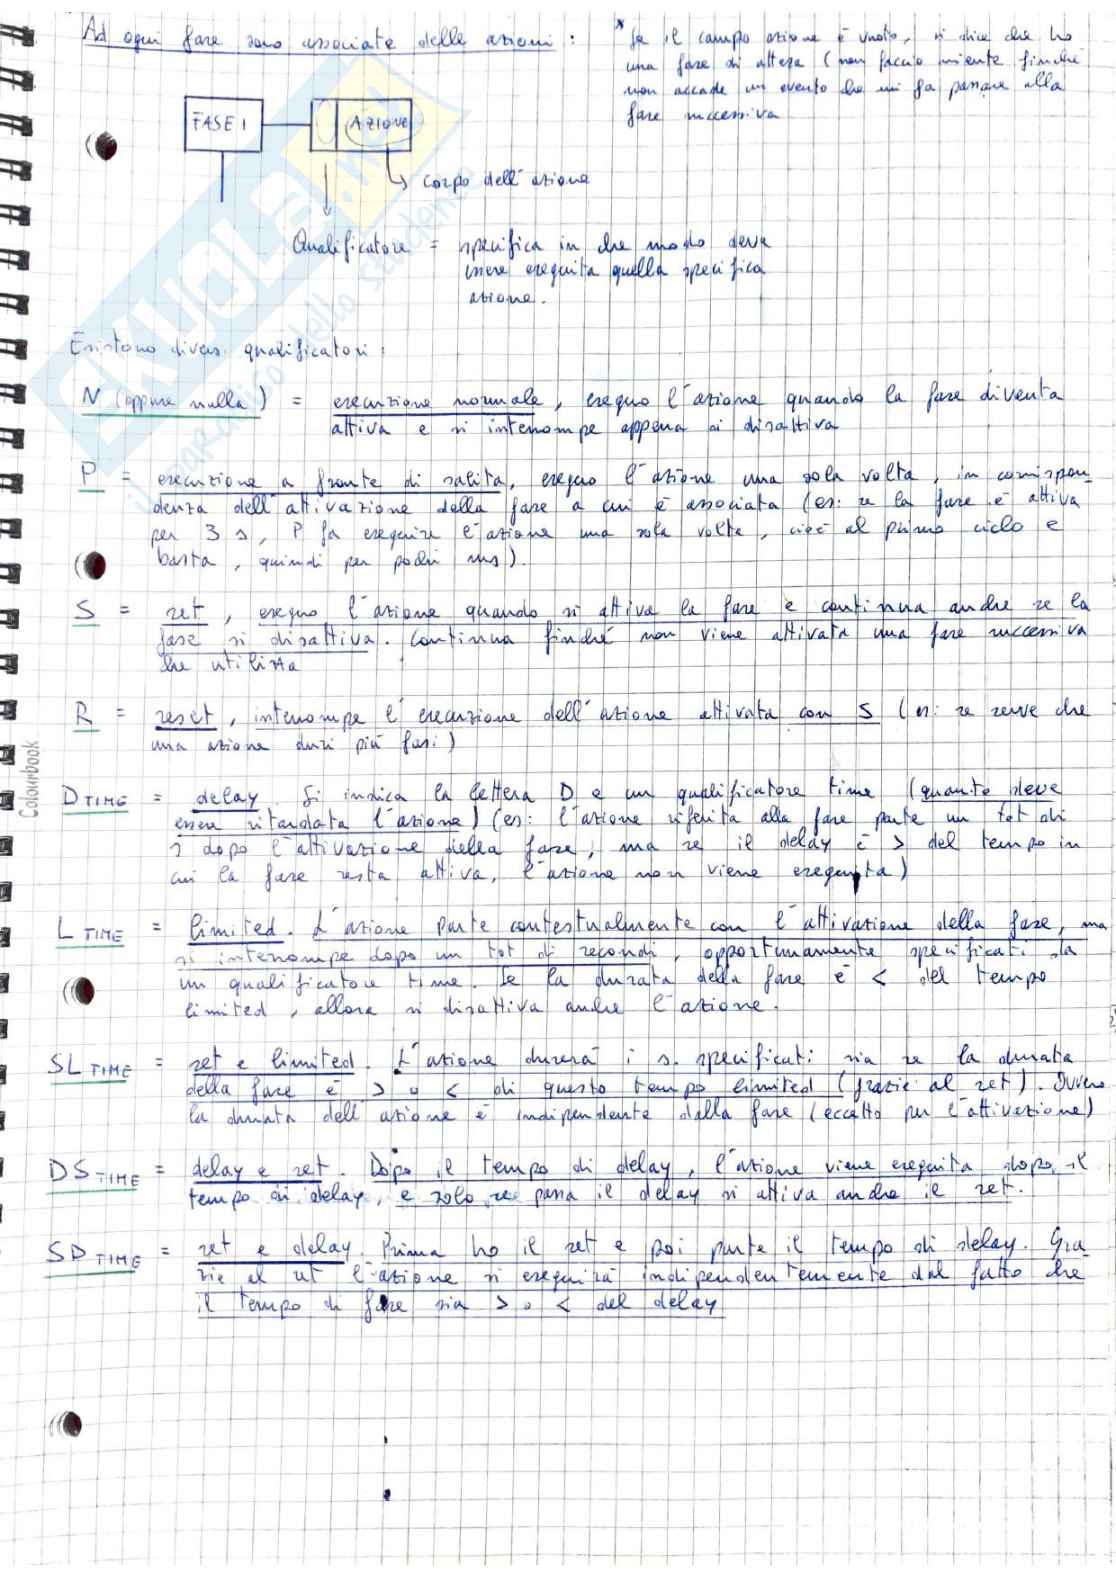 Ad ogni fase sono associate delle azioni :
* Se il campo azione è vuoto, si dice che ho
una fase di attesa (non faccio niente finché
non accade un evento che mi fa passare alla
fase successiva
FASE 1
AZIONE
corpo dell'azione
Qualificatore = specifica in che modo deve
essere eseguita quella specifica
azione.
Esistono diversi qualificatori :
N (oppure nulla) = esecuzione normale, eseguo l'azione quando la fase diventa
attiva e si interrompe appena si disattiva
P = esecuzione a fronte di salita, eseguo l'azione una sola volta, in corrispon-
denza dell'attivazione della fase a cui è associata (es: se la fase è attiva
per 3 s, P fa eseguire l'azione una sola volta, cioè al primo ciclo e
basta, quindi per pochi ms).
S = set, eseguo l'azione quando si attiva la fase e continua anche se la
fase si disattiva. Continua finché non viene attivata una fase successiva
che utilizza
R = reset, interrompe l'esecuzione dell'azione attivata con S (es: se serve che
una azione duri più fasi)
D TIME = delay. Si indica la lettera D e un qualificatore time (quanto deve
essere ritardata l'azione) (es: l'azione riferita alla fase parte un tot di
s dopo l'attivazione della fase, ma se il delay è > del tempo in
cui la fase resta attiva, l'azione non viene eseguita)
L TIME = limited. L'azione parte contestualmente con l'attivazione della fase, ma
si interrompe dopo un tot di secondi, opportunamente specificati da
un qualificatore time. Se la durata della fase è < del tempo
limited, allora si disattiva anche l'azione.
SL TIME = set e limited. L'azione durerà i s. specificati sia se la durata
della fase è > o < di questo tempo limited (grazie al set). Ovvero
la durata dell'azione è indipendente dalla fase (eccetto per l'attivazione)
DS TIME = delay e set. Dopo il tempo di delay, l'azione viene eseguita dopo il
tempo di delay, e solo se passa il delay si attiva anche il set.
SD TIME = set e delay. Prima ho il set e poi parte il tempo di delay. Gra-
zie al set l'azione si eseguirà indipendentemente dal fatto che
il tempo di fase sia > o < del delay
Colourbook
SKUOLA.net
il paradiso dello studente